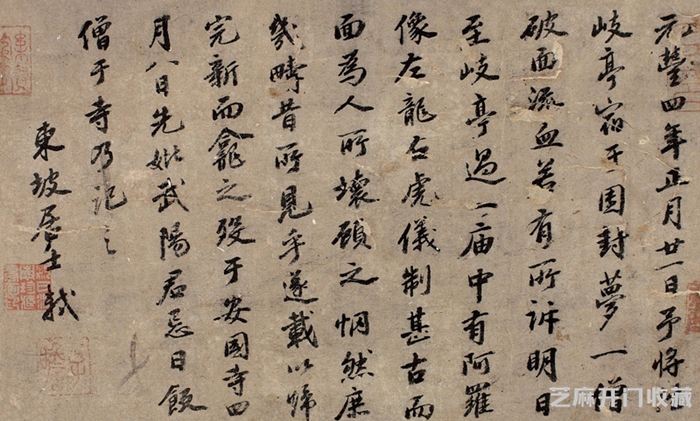 元豐四年正月廿一日予將
岐亭宿于團封夢一僧
破面流血若有所訴明日
至岐亭過一庙中有阿羅
像左龍右虎儀制甚古而
面為人所壞顧之惘然庶
幾疇昔所見乎遂載以歸
完新而龕之設于安國寺四
月八日先妣武陽君忌日飯
僧于寺乃記之
東坡居士軾
芝麻开门收藏